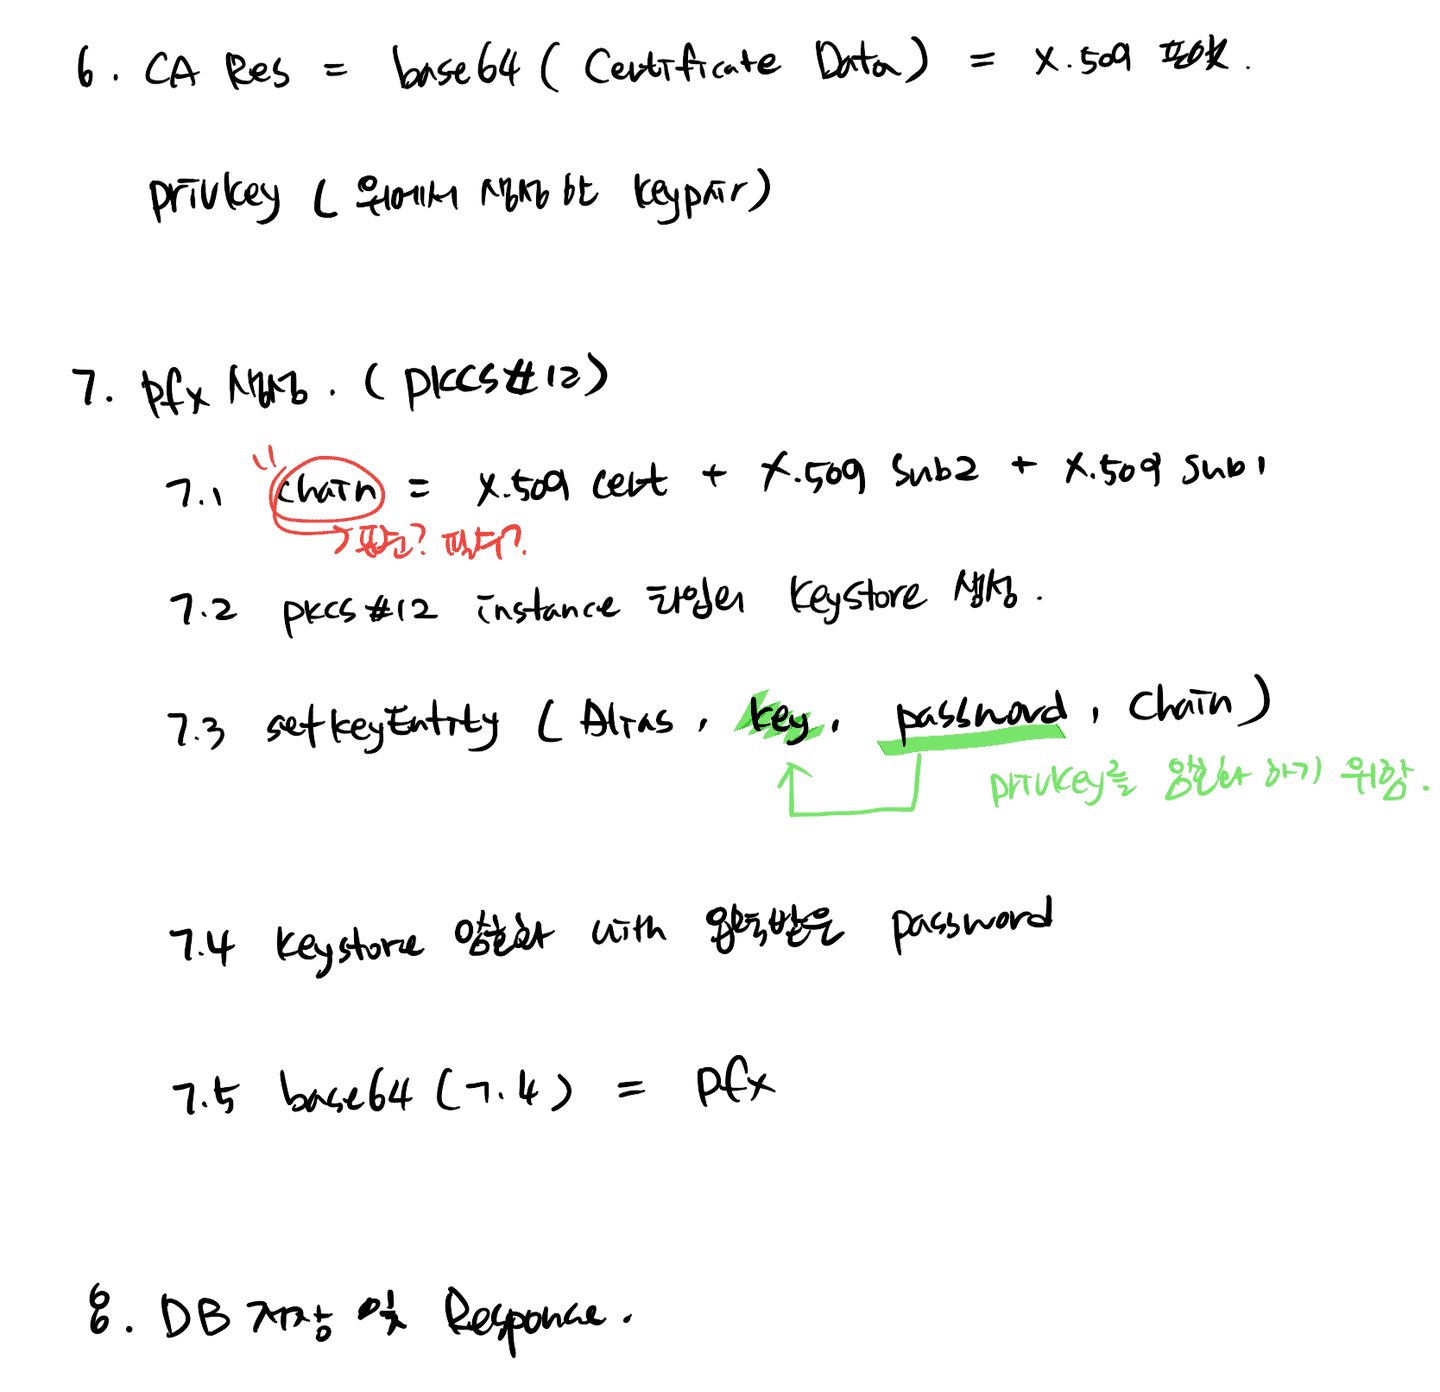 6. CA Res = base64 ( Certificate Data ) = X.509 포맷.
privkey ( 위에서 생성한 keypair )
7. pfx 생성. ( PKCS#12 )
7.1 "chain = X.509 cert + X.509 Sub2 + X.509 Sub1
→ 표준? 필수?
7.2 PKCS#12 instance 타입의 keystore 생성.
7.3 setkeyEntity ( Alias, key, password, chain )
privkey를 암호화 하기 위함.
7.4 keystore 암호화 with 입력받은 password
7.5 base64 (7.4) = pfx
8. DB 저장 및 Response.